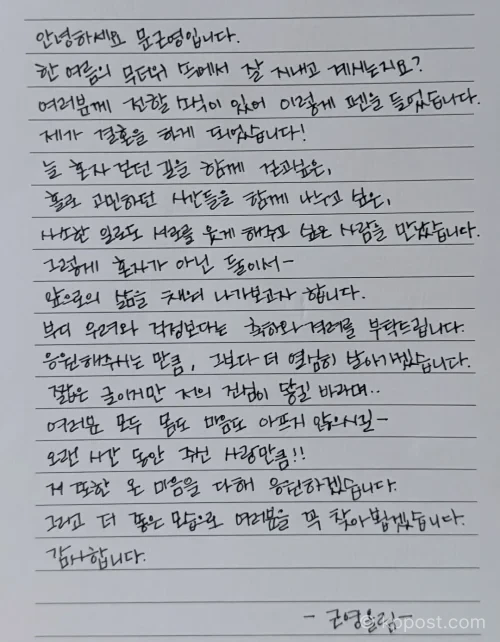 안녕하세요 문근영입니다.
한 여름의 무더위 속에서 잘 지내고 계시는지요?
여러분께 전할 소식이 있어 이렇게 펜을 들었습니다.
제가 결혼을 하게 되었습니다!
늘 혼자 보던 길을 함께 걷고싶은,
홀로 고민하던 시간들을 함께 나누고 싶은,
사소한 일로도 서로를 웃게 해주고 싶은 사람을 만났습니다.
그렇게 혼자가 아닌 둘이서-
앞으로의 삶을 채워 나가보고자 합니다.
부디 우려와 걱정보다는 축하와 격려를 부탁드립니다.
응원해주시는 만큼, 그보다 더 열심히 살아가겠습니다.
짧은 글이지만 저의 진심이 닿길 바라며..
여러분 모두 몸도 마음도 아프지 않으시길-
오랜 시간 동안 주신 사랑만큼!!
저 또한 온 마음을 다해 응원하겠습니다.
그리고 더 좋은 모습으로 여러분을 꼭 찾아뵙겠습니다.
감사합니다.
- 근영올림 -
© krpost.com